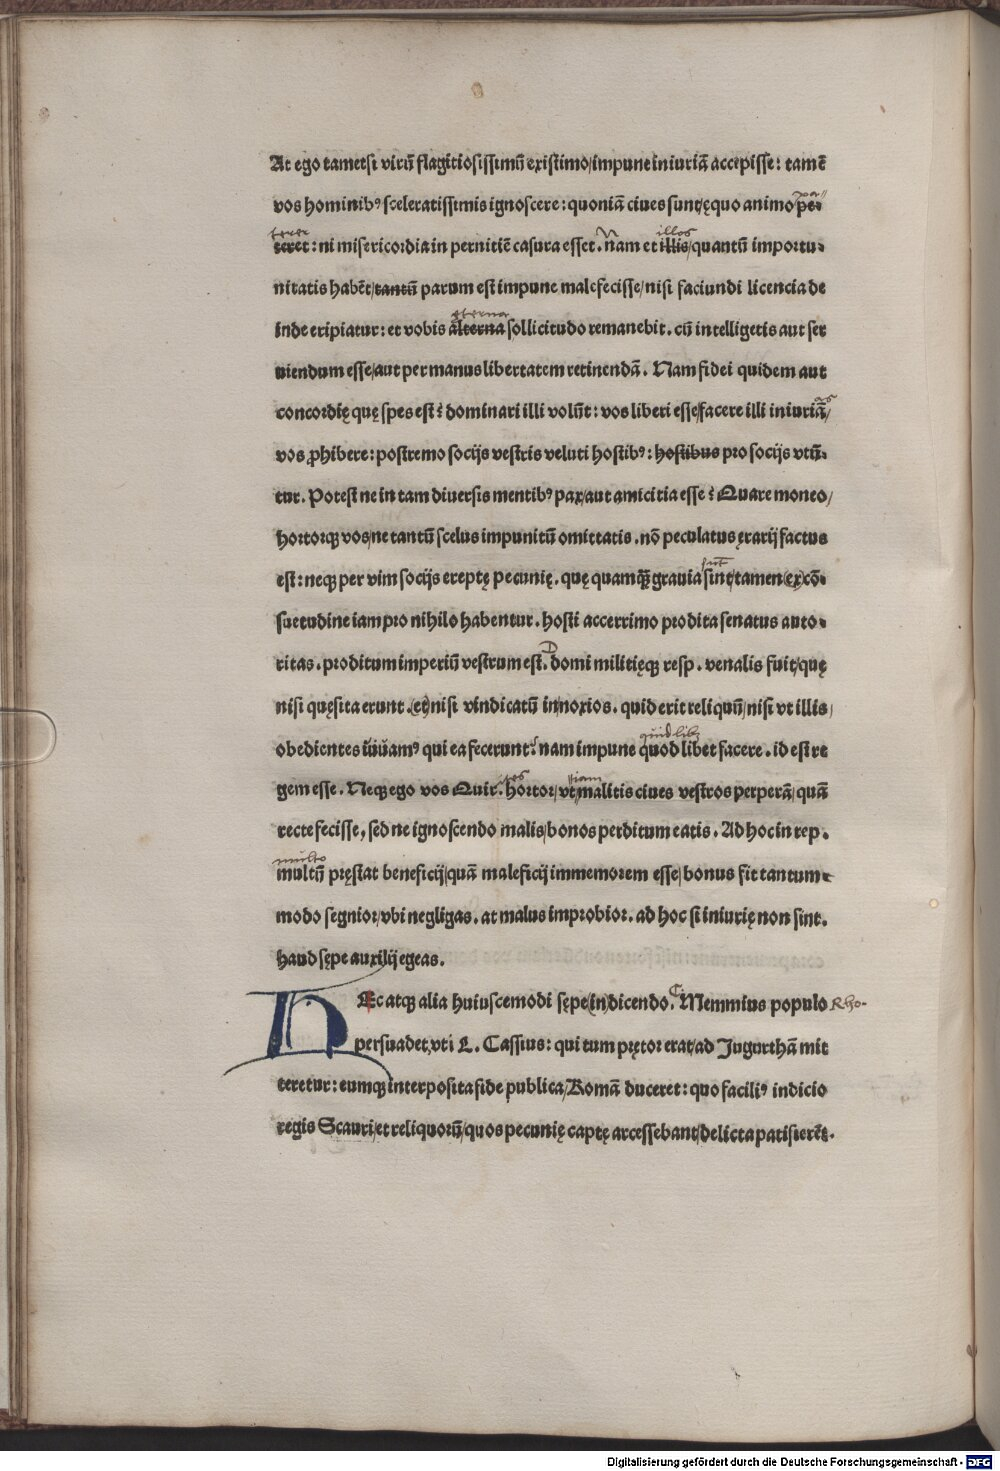 At ego tametsi virū flagitiosissimū existimo/impune iniuriā accepisse: tamē
vos hominibꝰ sceleratissimis ignoscere: quoniā ciues sunt/ęquo animo pe- pa//
teret: ni misericordia in pernitiē casura esset. Nam et illis/quantū importu- terer illos
nitatis habēt/tantū parum est impune malefecisse/nisi faciundi licencia de
inde eripiatur: et vobis alterna sollicitudo remanebit. cū intelligetis aut ser eterna
uiendum esse/aut per manus libertatem retinendā. Nam fidei quidem aut
concordię quę spes est? dominari illi volūt: vos liberi esse/facere illi iniuriā/ as
vos ꝓhibere: postremo socijs vestris veluti hostibꝰ: hostibus pro socijs vtū-
tur. Potest ne in tam diuersis mentibꝰ pax/aut amicitia esse? Quare moneo/
hortorqꝫ vos/ne tantū scelus impunitū omittatis. nō peculatus ęrarij factus
est: neqꝫ per vim socijs ereptę pecunię. quę quamqꝫ grauia sint/tamen (ex) cō- sūt
suetudine iam pro nihilo habentur. hosti accerrimo prodita senatus auto-
ritas. proditum imperiū vestrum est. domi militięqꝫ resp. venalis fuit/quę D
nisi quęsita erunt. (et) nisi vindicatū in noxios. quid erit reliquū/nisi vt illis/
obedientes viuamꝰ qui ea fecerunt? nam impune quod libet facere. id est re quid lib
gem esse. Neqꝫ ego vos Quir. hortor/vt malitis ciues vestros perperā/quā ites iam
recte fecisse, sed ne ignoscendo malis/bonos perditum eatis. Ad hoc in rep.
multū pręstat beneficij/quā maleficij immemorem esse/bonus fit tantum- multo
modo segnior/vbi negligas. at malus improbior. ad hoc si iniurię non sint.
haud sępe auxilij egeas.
HAec atqꝫ alia huiuscemodi sępe (in) dicendo. C Memmius populo Rho-
persuadet/vti L. Cassius: qui tum prętor erat/ad Jugurthā mit
teretur: eumqꝫ interposita fide publica/Romā duceret: quo faciliꝰ indicio
regis Scauri/et reliquorū/quos pecunię captę arcessebant/delicta patisierēt.
Digitalisierung gefördert durch die Deutsche Forschungsgemeinschaft - DFG